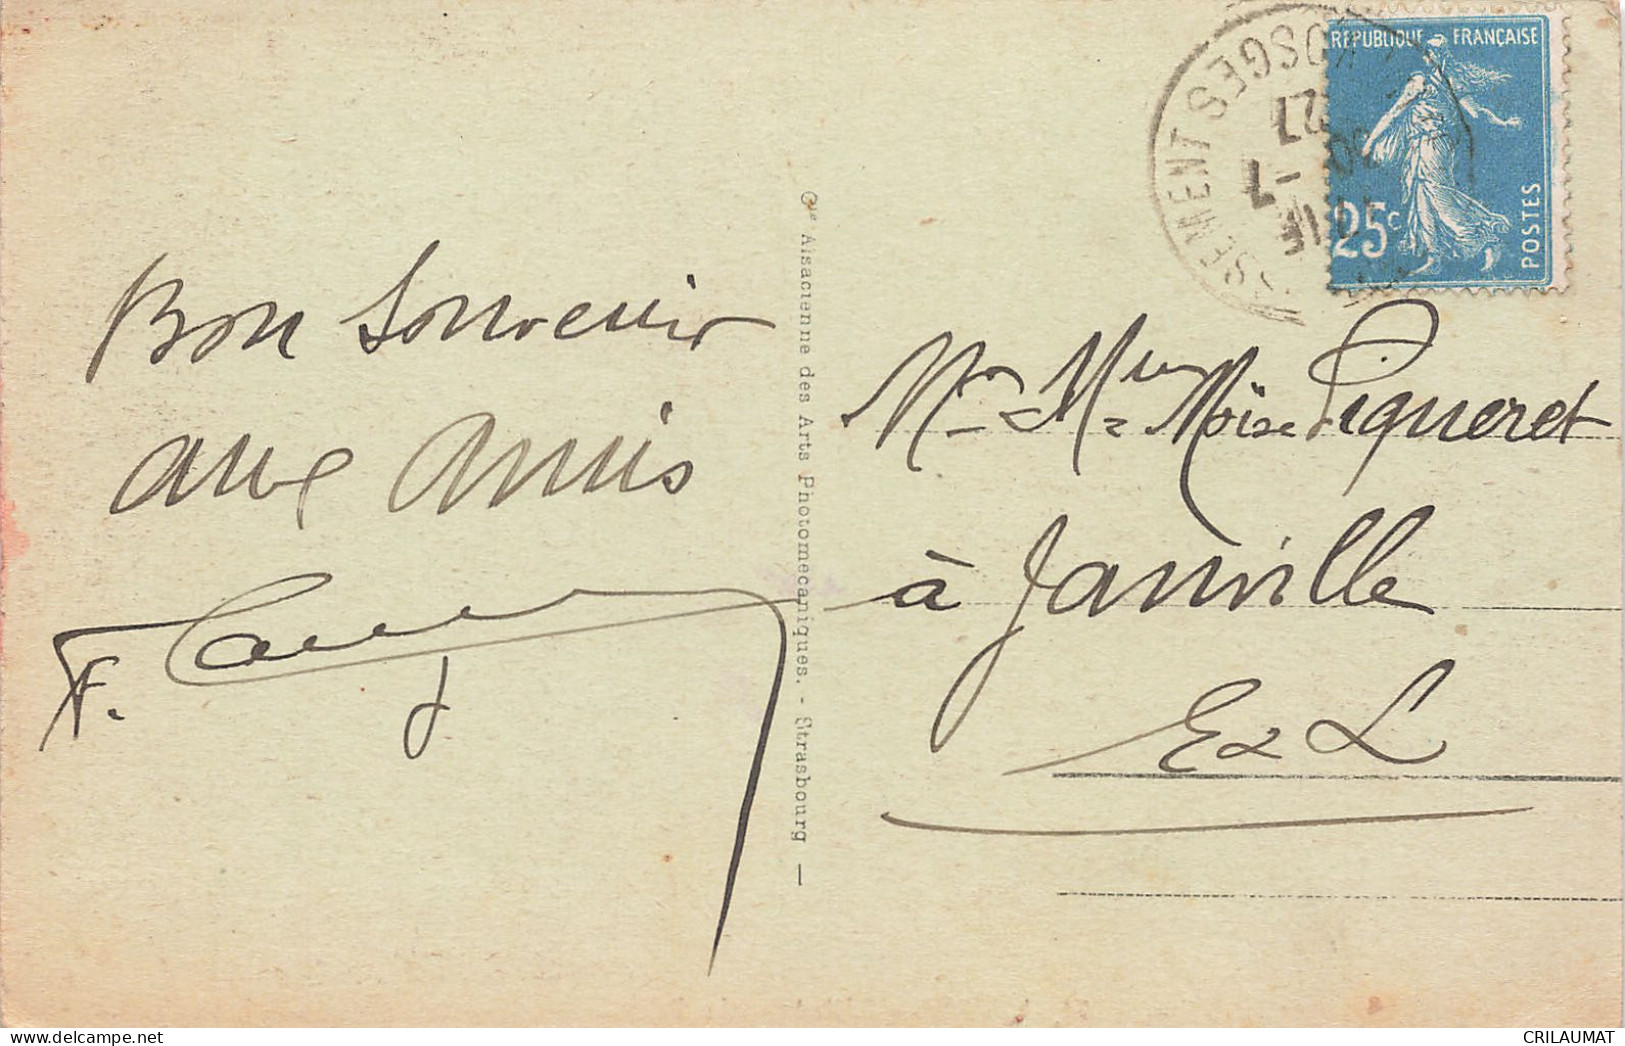 Bon Souvenir
aux Amis
F.
Cie Alsacienne des Arts Photomécaniques. - Strasbourg —
RÉPUBLIQUE FRANÇAISE
25c
POSTES
VOSGES
27
Moïse Piqueret
à Janville
E & L
CRILAUMAT